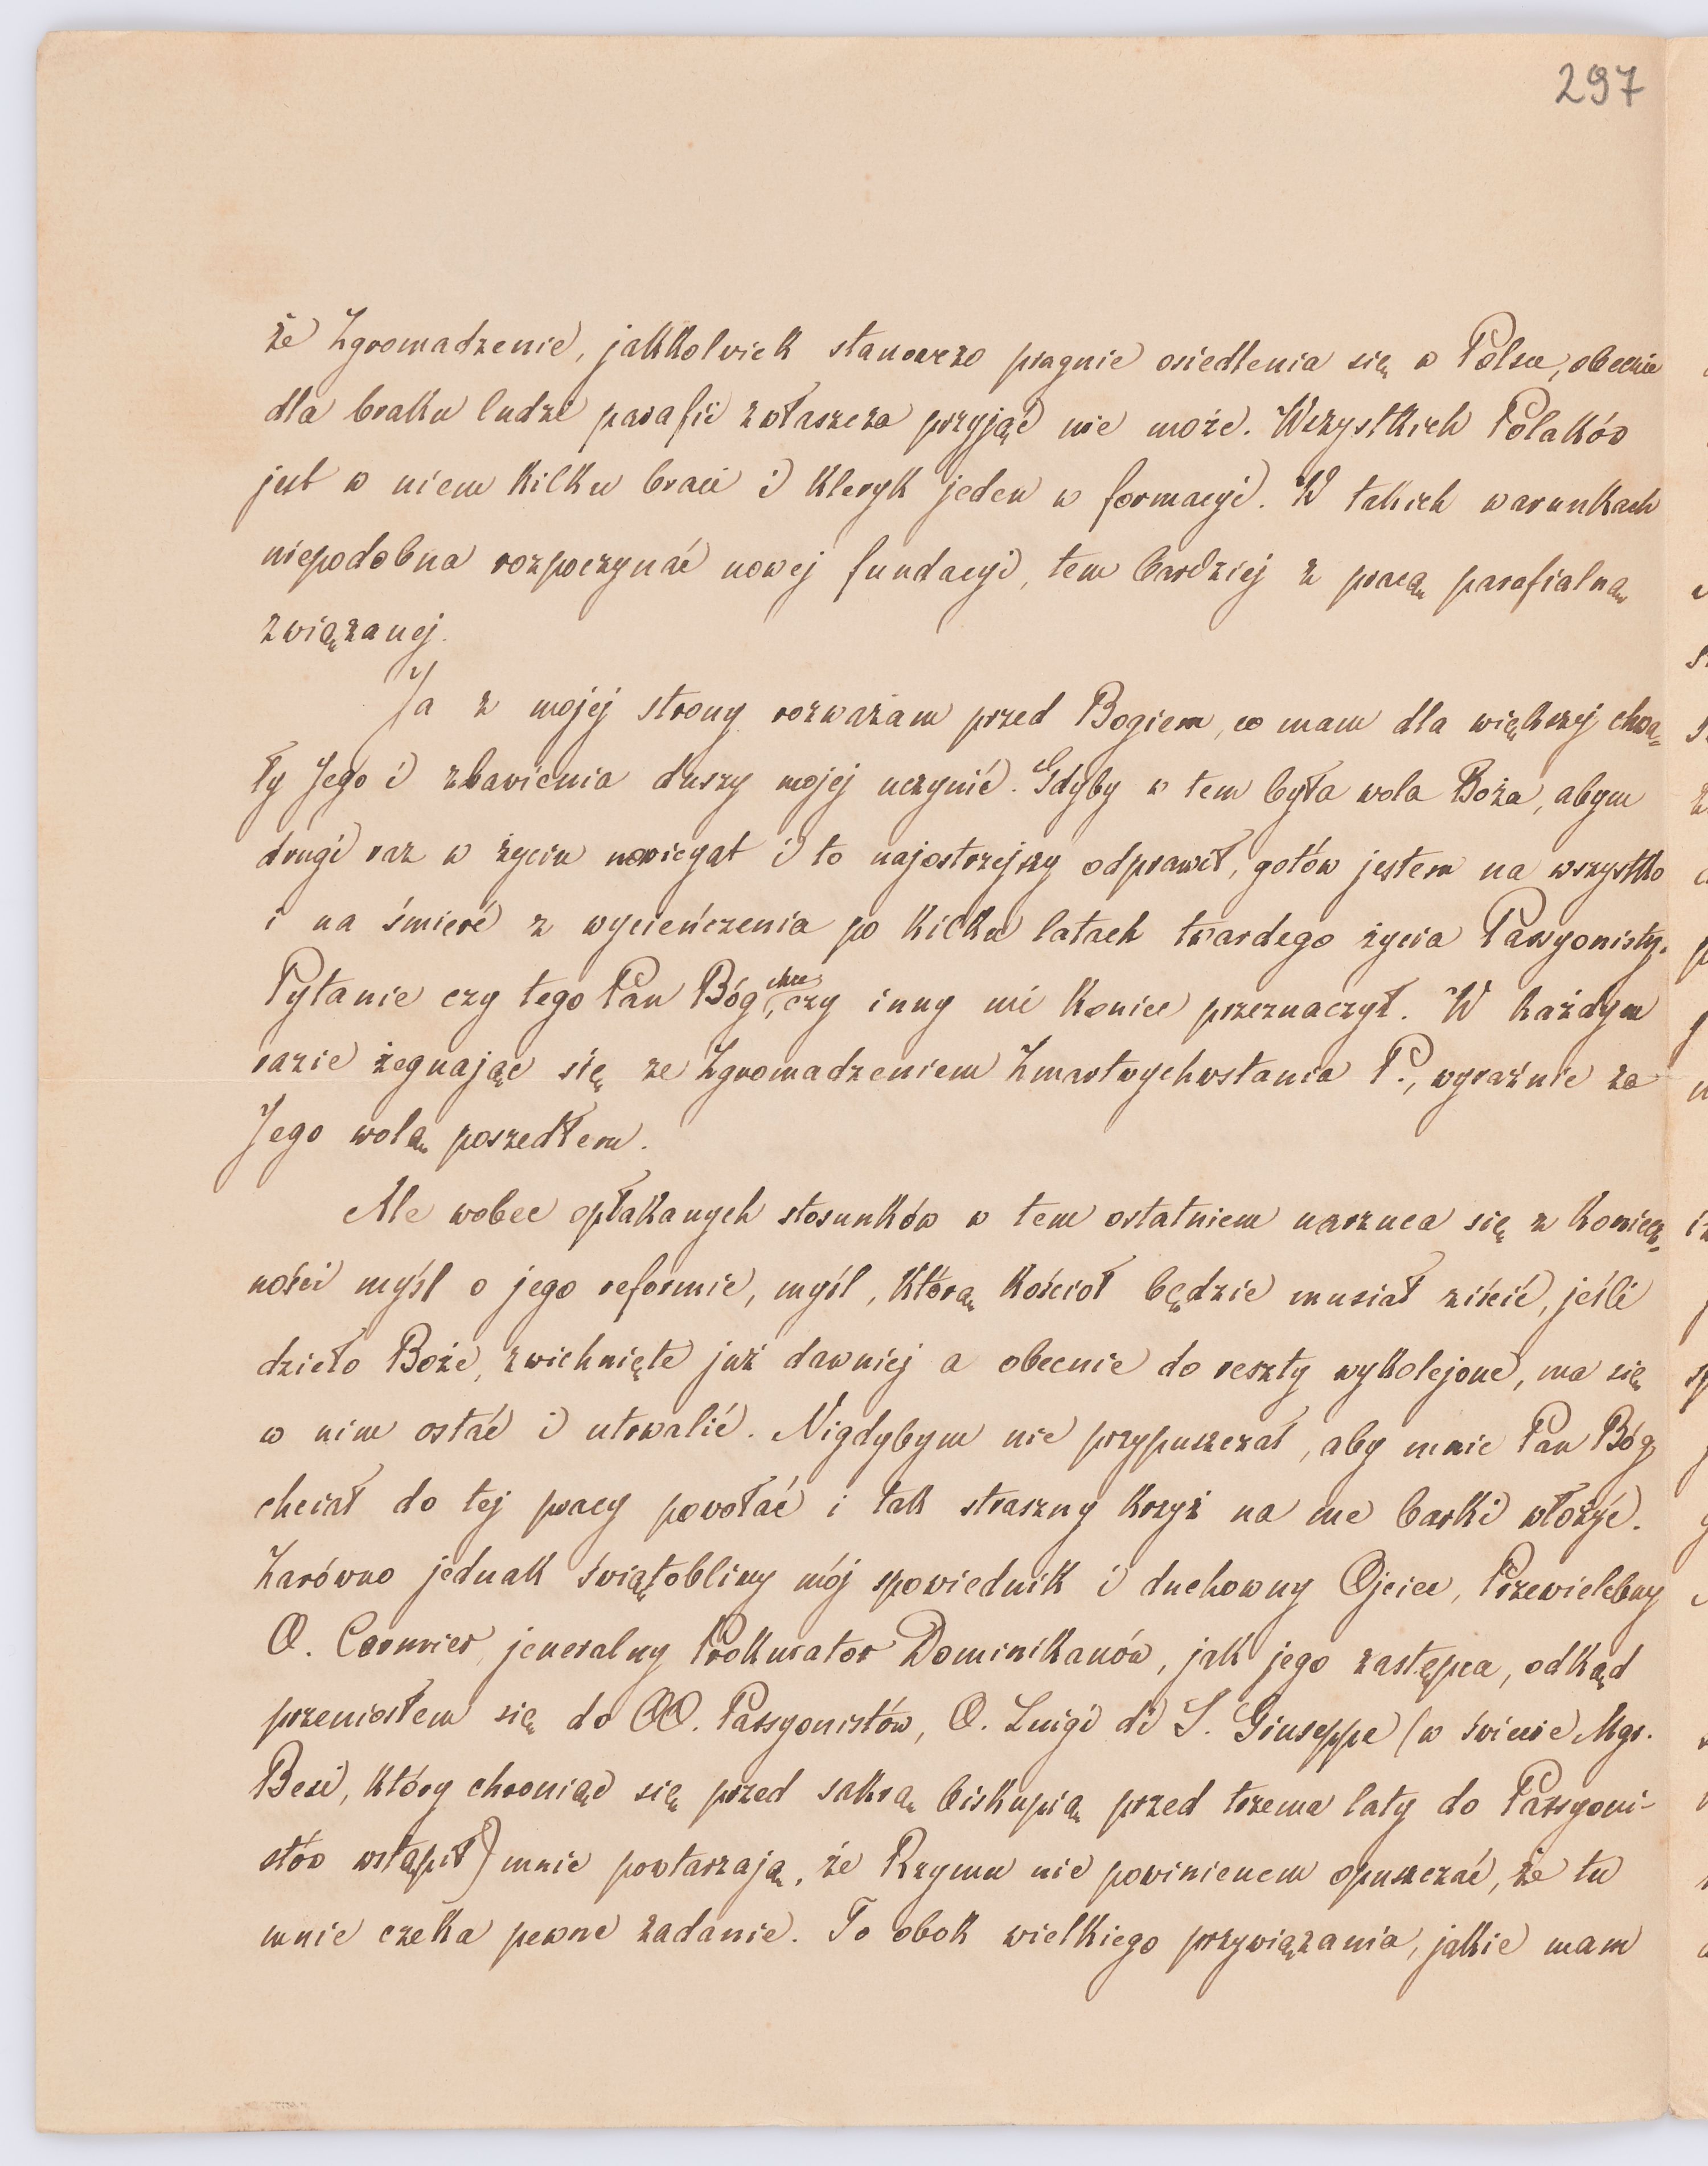 297
że Zgromadzenie, jakkolwiek stanowczo pragnie osiedlenia się w Polsce, obecnie
dla braku ludzi parafii zwłaszcza przyjąć nie może. Wszystkich Polaków
jest w niem kilku braci i kleryk jeden w formacyi. W takich warunkach
niepodobna rozpoczynać nowej fundacyi, tem bardziej z pracą parafialną
związanej.
Ja z mojej strony rozważam przed Bogiem, co mam dla większej chwa=
ły Jego i zbawienia duszy mojej uczynić. Gdyby w tem była wola Boża, abym
drugi raz w życiu nowicyat i to najostrzejszy odprawił, gotów jestem na wszystko
i na śmierć z wycieńczenia po kilku latach twardego życia Passyonisty.
Pytanie czy tego Pan Bóg chce, czy inny mi koniec przeznaczył. W każdym
razie żegnając się ze Zgromadzeniem Zmartwychwstania P., wyraźnie za
Jego wolą poszedłem.
Ale wobec opłakanych stosunków w tem ostatniem narzuca się z koniecz=
ności myśl o jego reformie, myśl, którą Kościoł będzie musiał ziścić, jeśli
dzieło Boże, zwichnięte już dawniej a obecnie do reszty wykolejone, ma się
w nim ostać i utrwalić. Nigdybym nie przypuszczał, aby mnie Pan Bóg
chciał do tej pracy powołać i tak straszny krzyż na me barki włożyć.
Zarówno jednak świątobliwy mój spowiednik i duchowny Ojciec, Przewielebny
O. Cormier, jeneralny Prokurator Dominikanów, jak jego zastępca, odkąd
przeniosłem się do OO. Passyonistów, O. Luigi di S. Giuseppe (w świecie Mgr.
Besi, który chroniąc się przed sakrą biskupią przed trzema laty do Passyoni-
stów wstąpił) mnie powtarzają, że Rzymu nie powinienem opuszczać, że tu
mnie czeka pewne zadanie. To obok wielkiego przywiązania, jakie mam